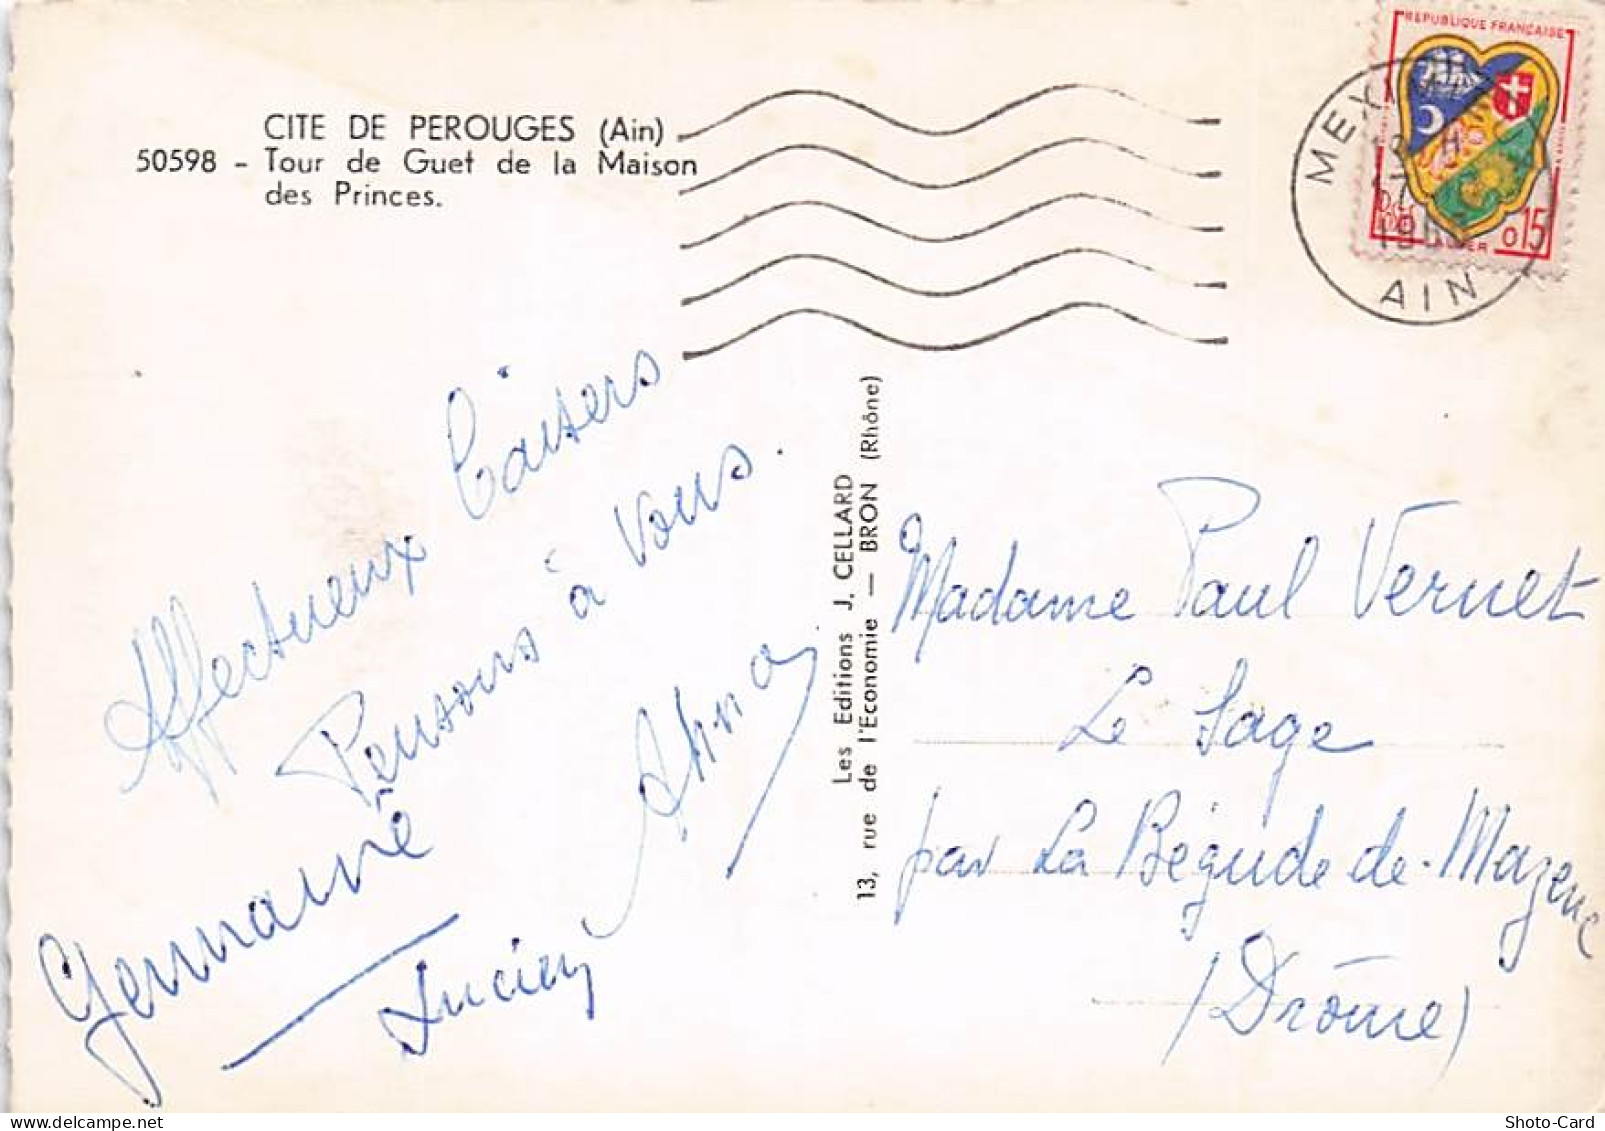 CITE DE PEROUGES (Ain)
50598 - Tour de Guet de la Maison
des Princes.
RÉPUBLIQUE FRANÇAISE
ALGER 0 15
AIN
Affectueux baisers
Pensons à vous.
Germaine
Lucien
Les Editions J. CELLARD
13, rue de l'Economie — BRON (Rhône)
Madame Paul Vernet
Le Sage
par La Bégude-de-Mazenc
(Drôme)
Shoto-Card